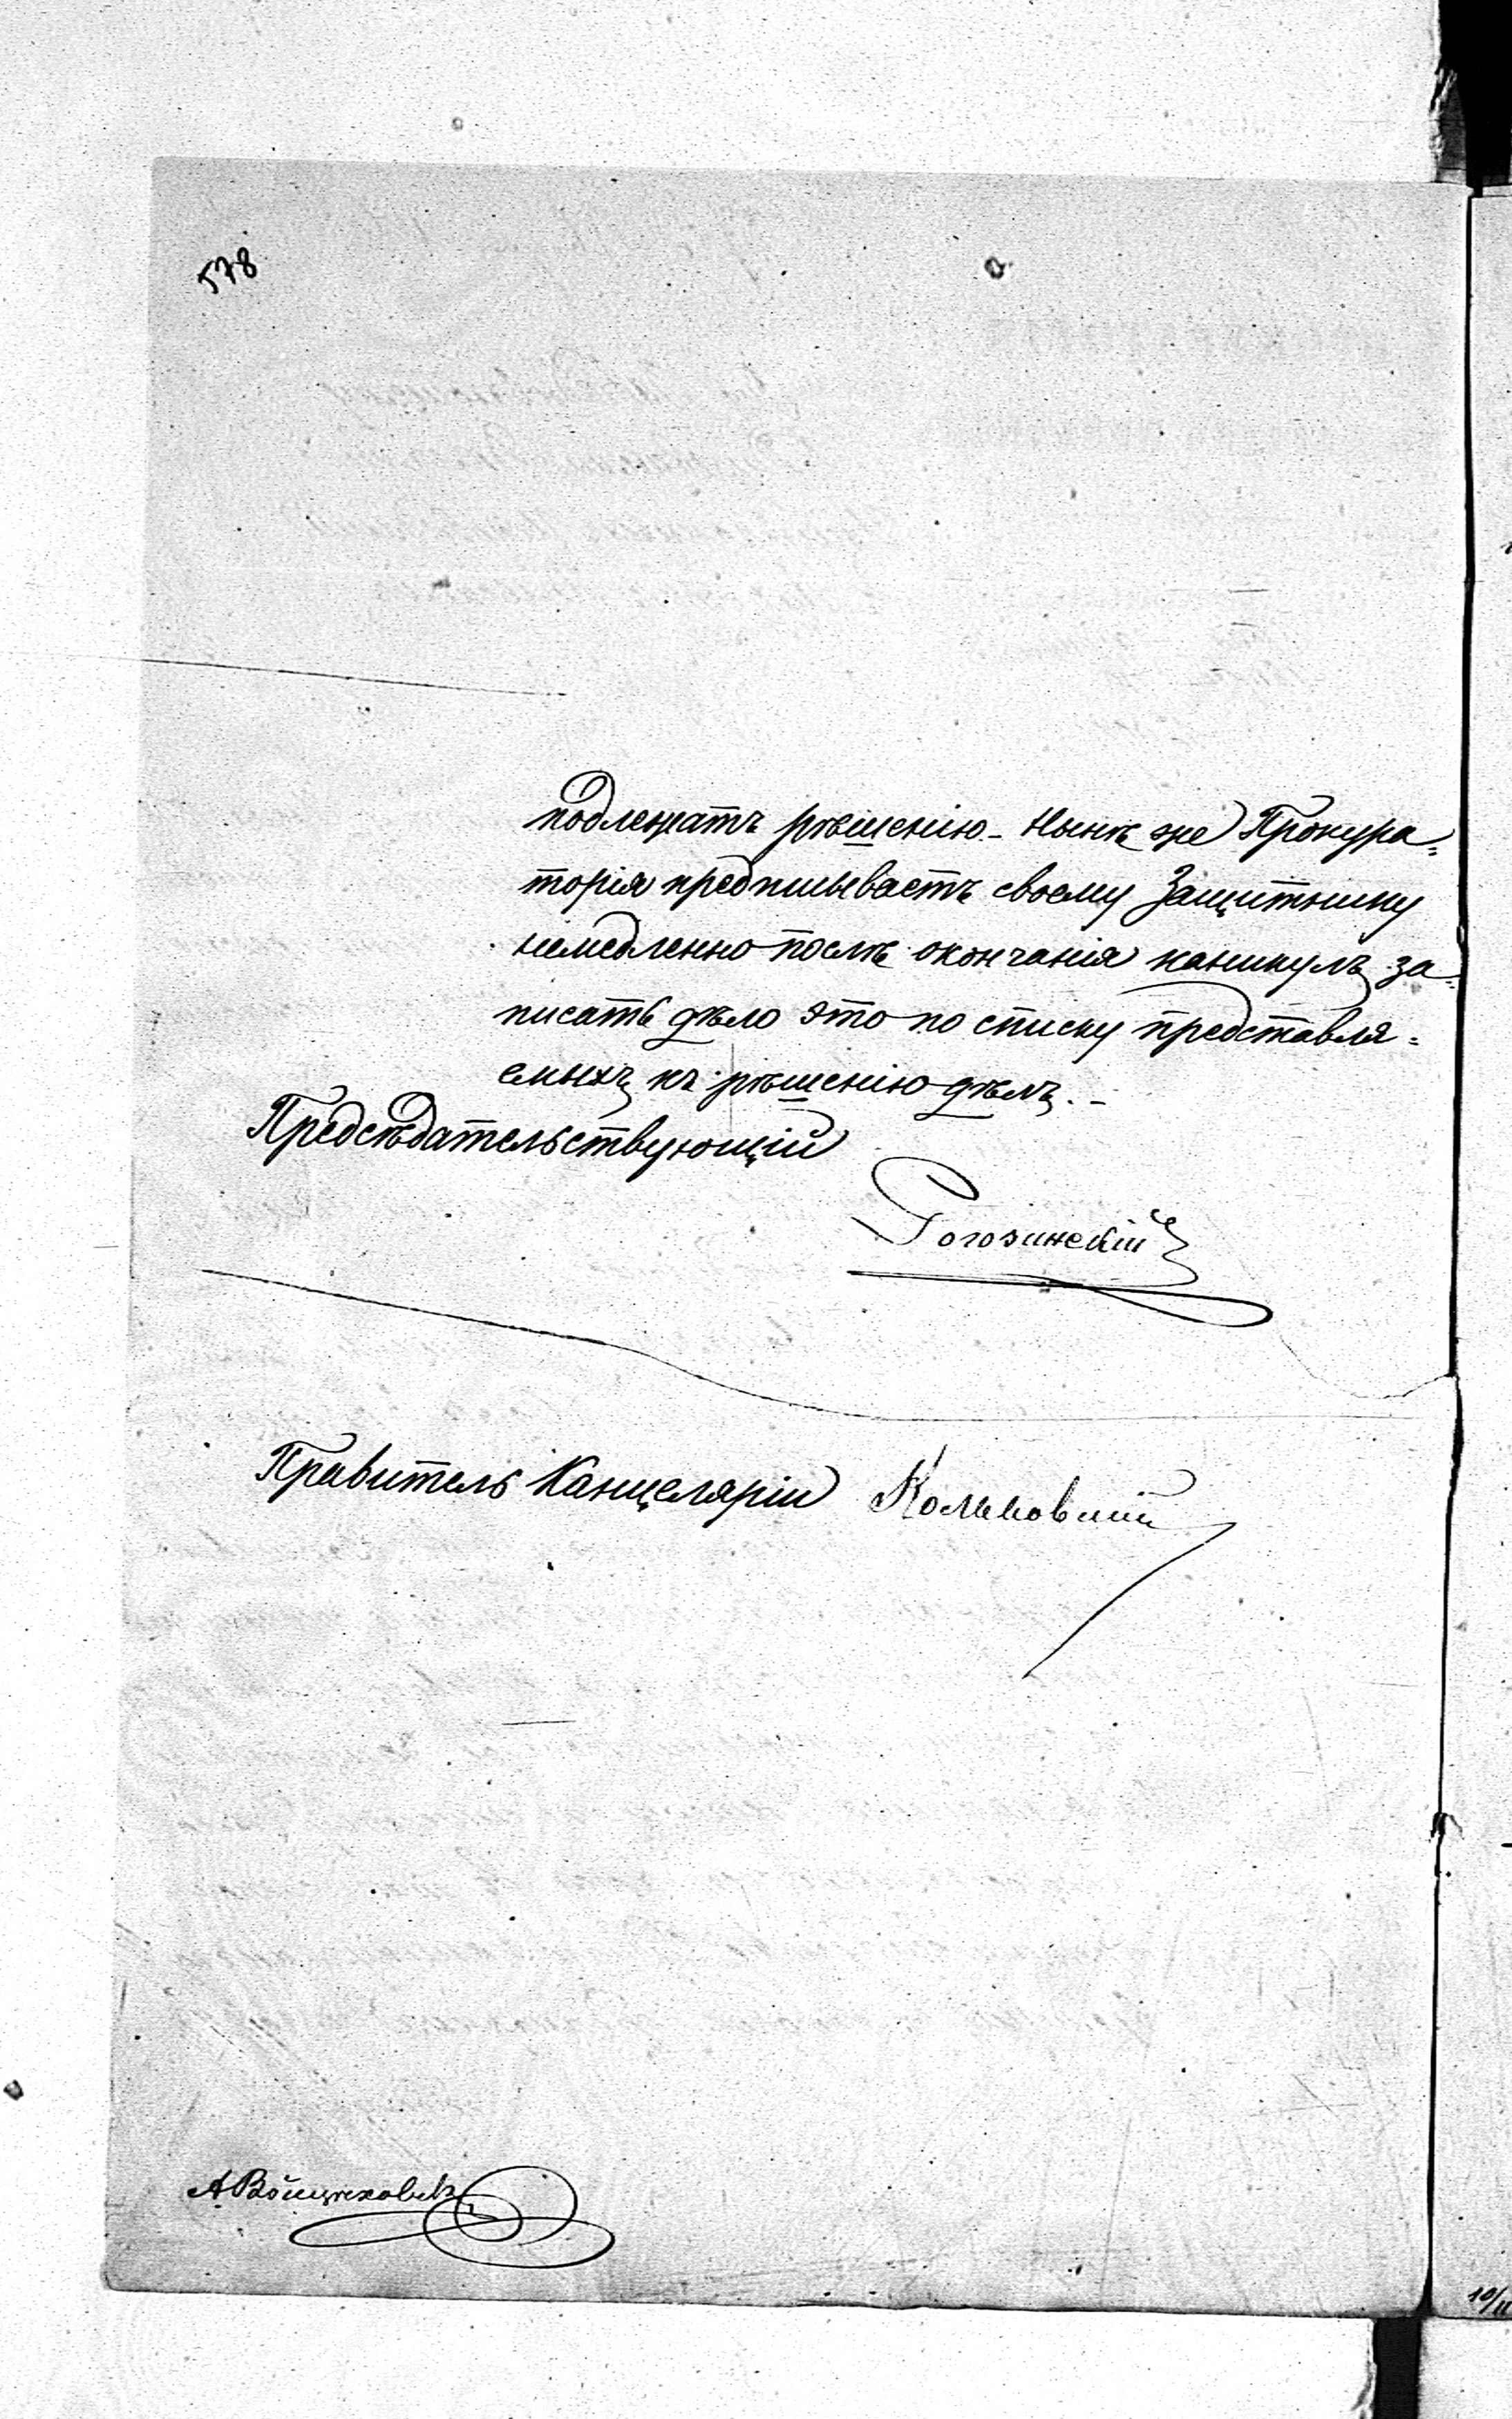 578
подлежатъ рѣшенію. – Нынѣ же Прокура=
торія предписываетъ своему Защитнику
немедленно послѣ окончанія каникулъ за=
писать дѣло это по списку представля=
емыхъ къ рѣшенію дѣлъ. –
Предсѣдательствующій
Рогозинскій
Правитель Канцеляріи